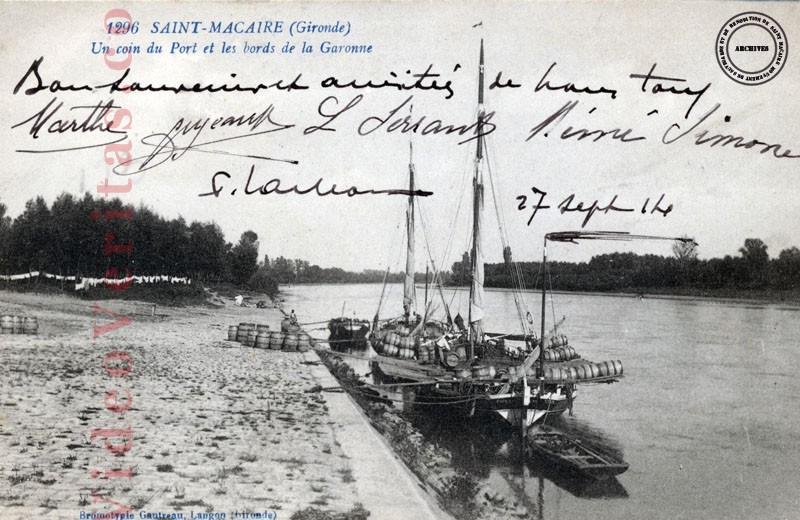 1296 SAINT-MACAIRE (Gironde)
Un coin du Port et les bords de la Garonne
ARCHIVES
Bon souvenir et amitiés de nous tous
Marthe L Serrant Rémi Simone
27 Sept 14
Videoveritasco
Bromotypie Gautreau, Langon (Gironde)